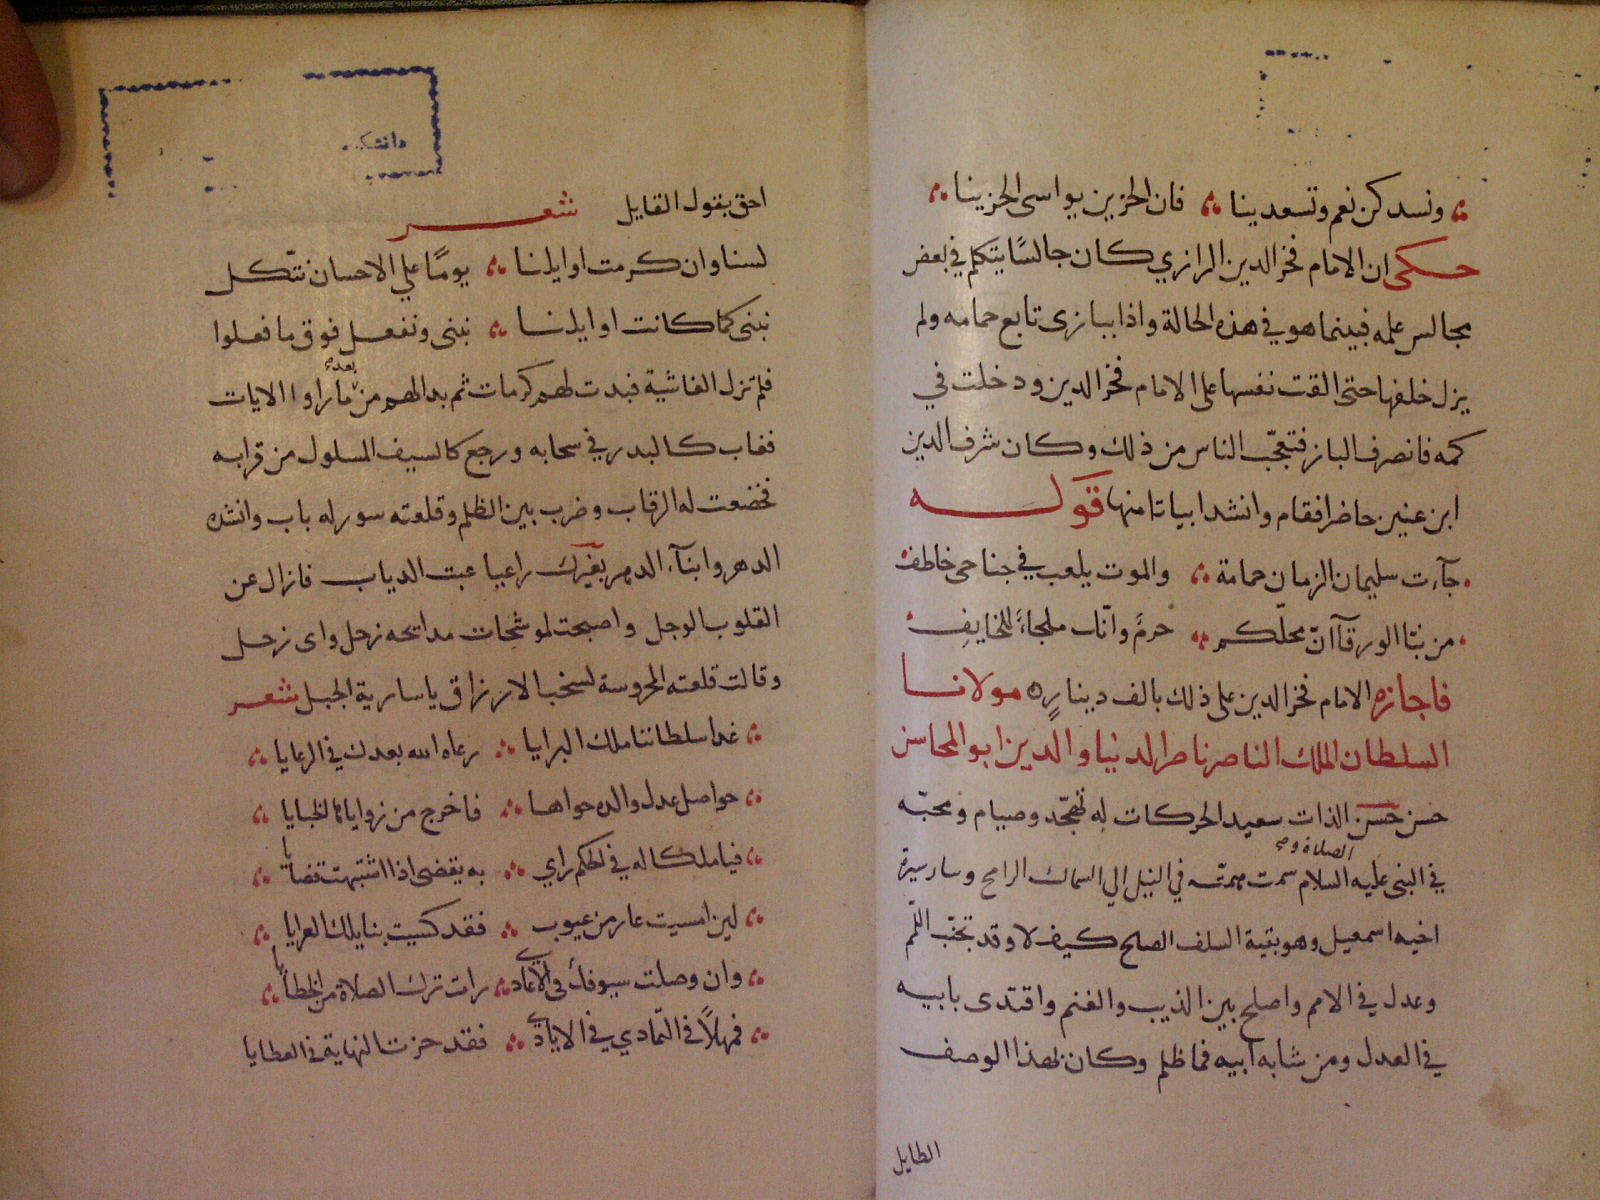 ونسدكن نعم وتسعدينا فان الحزين يواسى الحزينا
حكى ان الامام فخر الدين الرازي كان جالسًا يتكلم في بعض
مجالس علمه فبينما هو في هذه الحالة واذا ببازى تابع حمامه ولم
يزل خلفها حتى القت نفسها على الامام فخر الدين ودخلت في
كمه فانصرف الباز فتعجّب الناس من ذلك وكان شرف الدين
ابن عنين حاضرا فقام وانشد ابياتا منها قوله
جآءت سليمان الزمان حمامة والموت يلعب في جناحى خاطف
من نبّا الورقآ انّ محلّكم حرمٌ وانّك ملجاءً للخايفِ
فاجازه الامام فخر الدين على ذلك بالف دينارٍ ه مولانا
السلطان الملك الناصر ناصر الدنيا والدين ابو المحاسن
حسن حَسَن الذات سعيد الحركات له تهجّد وصيام ومحبّه
في النبى عليه الصلاة و السلام سمت همته في النيل الي السماك الرامح وسار سيرة
اخيه اسمعيل وهو بقية السلف الصلح كيف لا وقد تجنّب اللّم
وعدل في الامم واصلح بين الذيب والغنم واقتدى بابيه
في العدل ومن شابه ابيه فما ظلم وكان بهذا الوصف
الطايل
دانشكـ
احق بقول القايل شعر
لسنا وان كرمت اوايلنا يومًا علي الاحسان نتّكل
نبنى كما كانت اوايلنا نبنى ونفعل فوق ما فعلوا
فلم تزل الغاشية فبدت لهم كرمات ثم بدا لهم من بعد ما راوا الايات
فغاب كالبدر في سحابه ورجع كالسيف المسلول من قرابه
فخضعت له الرقاب وضرب بين الظلم وقلعته سور له باب وانشده
الدهر وابنآء الدهر بغيرك راعيا عبث الدياب فازال عن
القلوب الوجل واصبحت لموشحات مدايحه زحل واى زحل
وقالت قلعته المحروسة لسحب الارزاق يا سارية الجبل شعر
غدا سلطاننا ملك البرايا رعاه الله بعدك في الرعايا
حواصل عدل والده حواها فاخرج من زواياها الخبايا
فيا ملكا له في الحكم راي به يقضى اذا اشتبهت قضايا
لين امسيت عار من عيوب فقد كسيت بنايلك العرايا
وان وصلت سيوفك فى الاعادي رات ترك الصلاة من الخطايا
فمهلاً في التّمادي في الايادي فقد حزت النهاية في العطايا